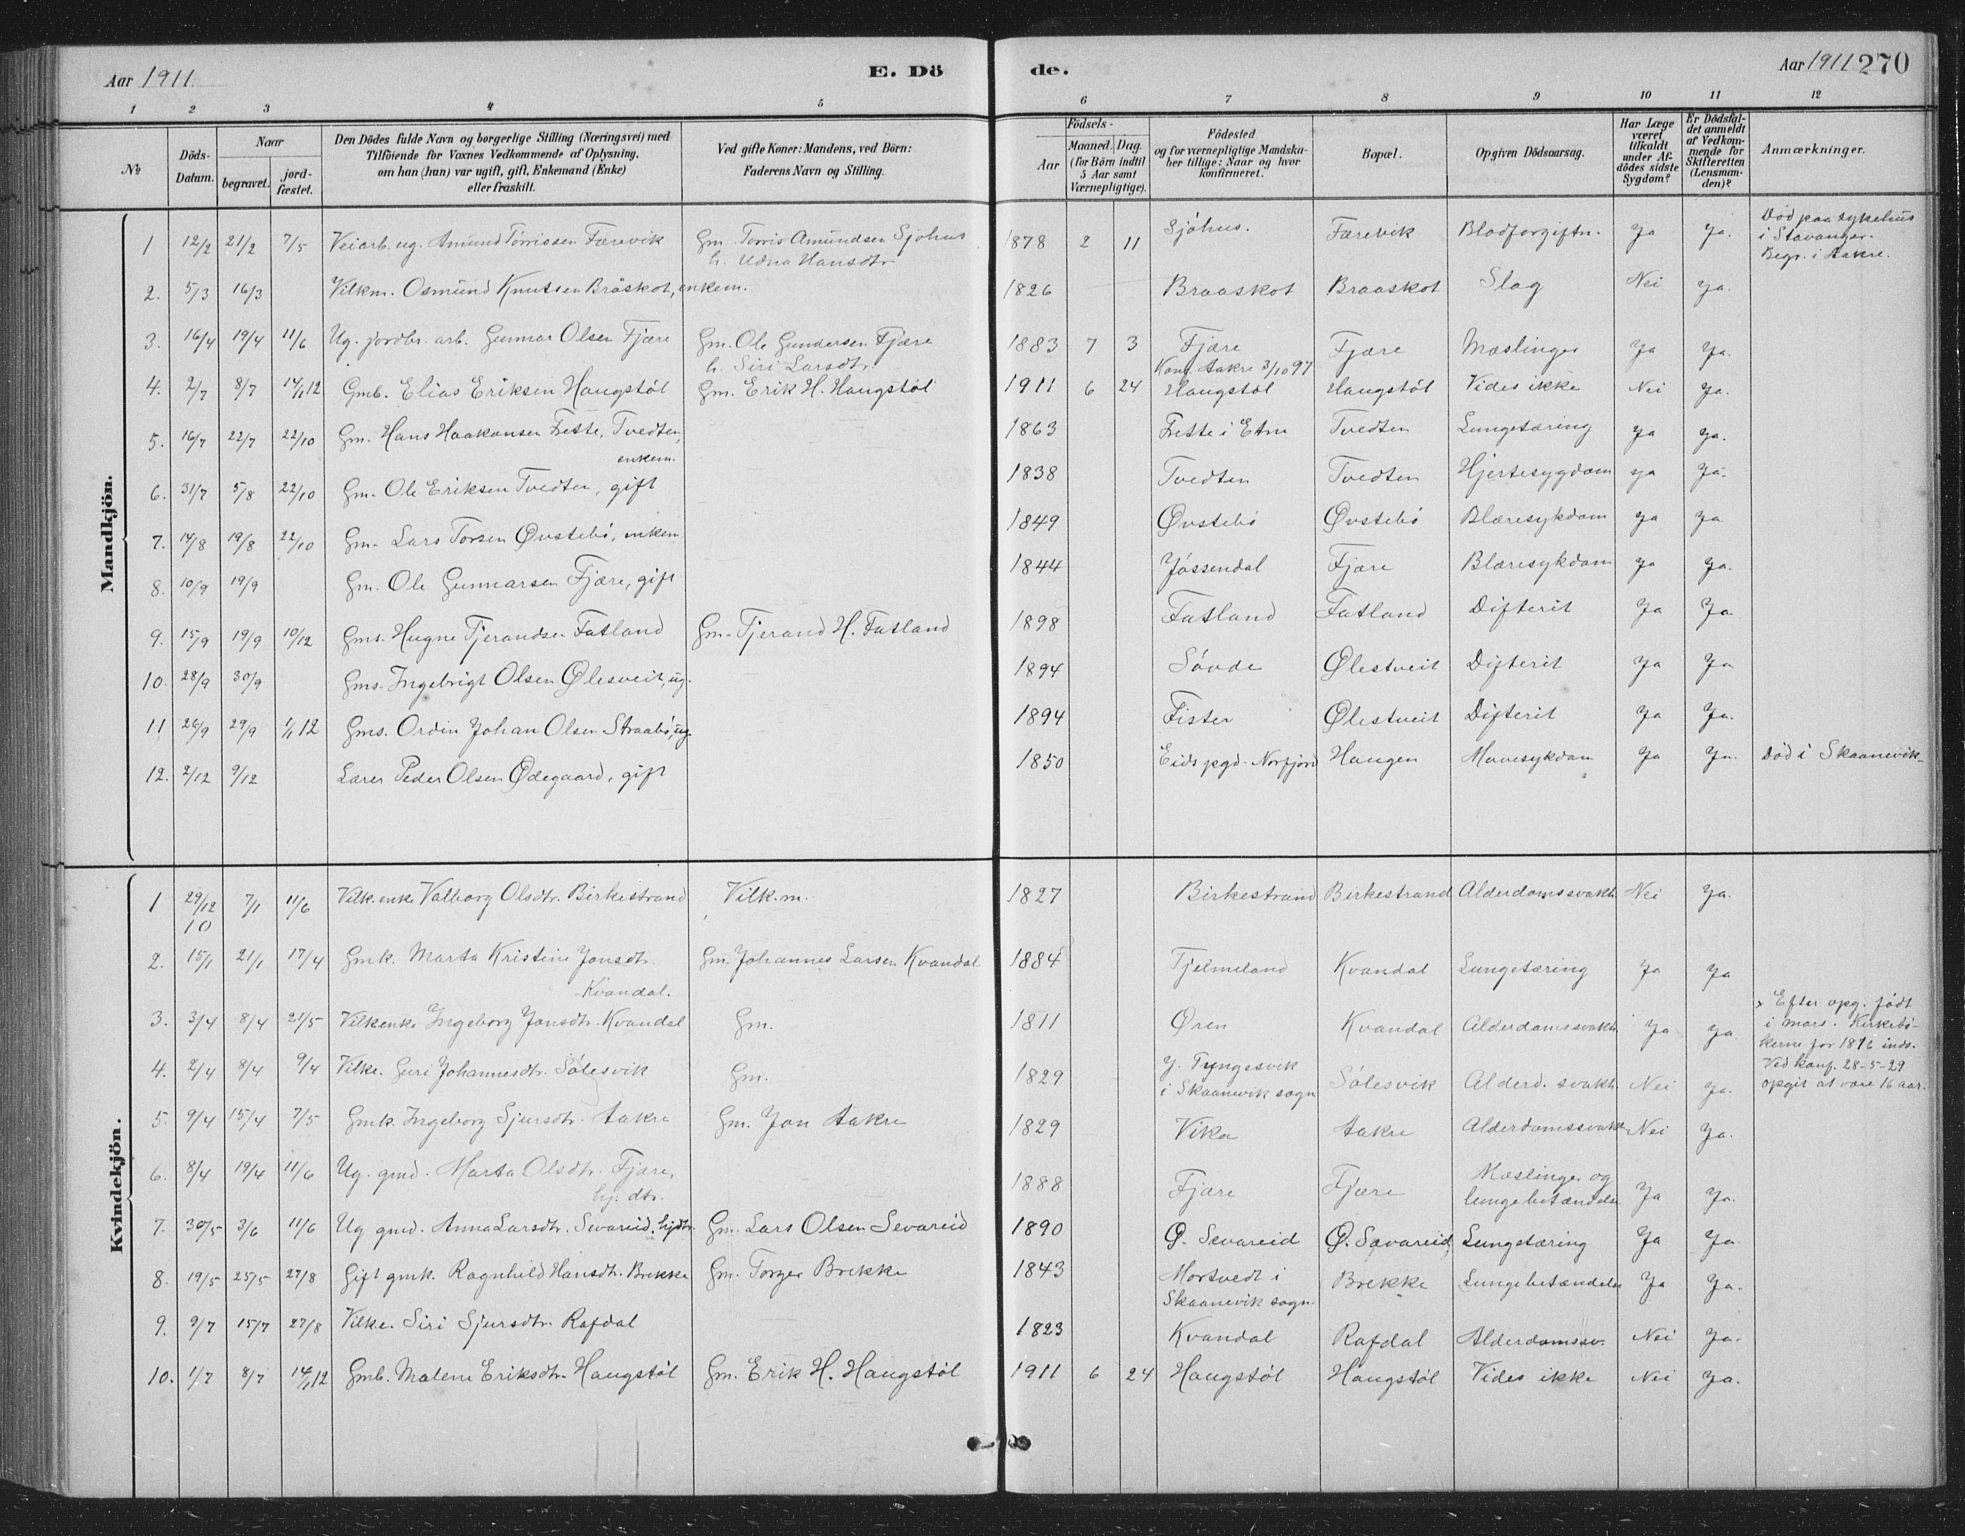 Aar 1911. E. Dö de. Aar 1911 270
1 2 3 4 5 6 7 8 9 10 11 12
No
Döds-Datum.
Naar
begravet.
jord-fæstet.
Den Dödes fulde Navn og borgerlige Stilling (Næringsvei) med
Tilföiende for Voxnes Vedkommende af Oplysning,
om han (hun) var ugift, gift, Enkemand (Enke)
eller fraskilt.
Ved gifte Koner: Mandens, ved Börn:
Faderens Navn og Stilling.
Födsels-
Aar
Maaned. Dag.
(for Börn indtil
5 Aar samt
Værnepligtige).
Födested
og for værnepligtige Mandska-
ber tillige: Naar og hvor
konfirmeret.
Bopæl.
Opgiven Dödsaarsag.
Har Læge
været
tilkaldt
under Af-
dödes sidste
Sygdom?
Er Dödsfal-
det anmeldt
af Vedkom-
mende for
Skifteretten
(Lensman-
den)?
Anmærkninger.
Mandkjön.
1 12/2 21/2 7/5 Veiarb. ug. Amund Tørrissen Færevik Gm. Torris Amundsen Sjøhus 1878 2 11 Sjøhus. Færevik Blodforgiftn. Ja Ja. Død paa sykehus
h. Udna Hansdtr. i Stavanger.
Begr. i Aakre.
2. 5/3 16/3 Vilkm. Osmund Knutsen Bråskot, enkem. 1826 Braaskot Braaskot Slag Nei Ja.
3. 16/4 19/4 11/6 Ug. jordbr. arb. Gunnar Olsen Fjære Gm. Ole Gundersen Fjære 1883 7 3 Fjære Fjære Mæslinger Ja Ja.
h. Siri Larsdtr. Konf. Aakre 3/10 97
4. 2/7 8/7 14/1 12 Gmb. Elias Eriksen Haugstøl Gm. Erik H. Haugstøl 1911 6 24 Haugstøl Haugstøl Vides ikke Nei Ja.
5. 16/7 22/7 22/10 Gm. Hans Haakonsen Frette, Tvedten, 1863 Frette i Etne Tvedten Lungetæring Ja Ja.
enkem.
6. 31/7 5/8 22/10 Gm. Ole Eriksen Tvedten, gift 1838 Tvedten Tvedten Hjertesygdom Ja Ja.
7. 14/8 19/8 22/10 Gm. Lars Torsen Øvstebø, enkem 1849 Øvstebø Øvstebø Blæresykdom Ja Ja
8. 10/9 19/9 Gm. Ole Gunnarsen Fjære, gift 1844 Jøssendal Fjære Blæresykdom Ja Ja.
9. 15/9 19/9 10/12 Gms. Hugne Tjerandsen Fatland Gm. Tjerand H. Fatland 1898 Fatland Fatland Difterit Ja Ja.
10. 28/9 30/9 Gms. Ingebrigt Olsen Ølesveit, ug. 1894 Søvde Ølestveit Difterit Ja Ja
11 26/9 29/9 1/1 12 Gms. Ordin Johan Olsen Straabø, ug. 1894 Fister Ølestveit Difterit Ja Ja.
12. 2/12 9/12 Lærer Peder Olsen Ødegaard, gift 1850 Eids pgd. Norfjord Haugen Mavesykdom Ja Ja. Død i Skaanevik.
Kvindekjön.
1 29/12 10 7/1 11/6 Vilk. enke Valborg Olsdtr. Birkestrand Vilk.m. 1827 Birkestrand Birkestrand Alderdomssvakh. Nei Ja.
2. 15/1 21/1 17/4 Gmk. Marta Kristine Jonsdtr. Gm. Johannes Larsen Kvandal 1884 Tjelmeland Kvandal Lungetæring Ja Ja
Kvandal.
3. 3/4 8/4 21/5 Vilkenke Ingeborg Jonsdtr. Kvandal Gm. 1811 Øren Kvandal Alderdomssvakh. Ja Ja x Efter opg. født
i mars. Kirkebø-
kerne for 1816 inds.
Ved konf. 28-5-29
opgit at være 16 aar.
4. 2/4 8/4 9/4 Vilke. Guri Johannesdtr. Sølesvik Gm. 1829 Y. Tungesvik Sølesvik Alderd. svakh. Nei Ja.
i Skaanevik sogn
5. 9/4 15/4 7/5 Gmk. Ingeborg Sjursdtr. Aakre Gm. Jon Aakre 1829 Vika Aakre Alderdomssvakh. Nei Ja.
6. 8/4 19/4 11/6 Ug. gmd. Marta Olsdtr. Fjære, 1888 Fjære Fjære Mæslinger og Ja Ja.
hj. dtr. lungebetændelse
7. 30/5 3/6 11/6 Ug gmd. Anna Larsdtr. Sevareid, hjdtr. Gm. Lars Olsen Sevareid 1890 Ø. Sævareid Ø. Sævareid Lungetæring Ja Ja.
8. 19/5 25/5 27/8 Gift gmk. Ragnhild Hansdtr. Brekke Gm. Torger Brekke 1843 Mortvedt i Brekke Lungebetændelse Ja Ja.
Skaanevik sogn.
9. 9/7 15/7 27/8 Vilke. Siri Sjursdtr. Rafdal 1823 Kvandal Rafdal Alderdomssv. Nei Ja.
10. 1/7 8/7 14/1 12 Gmb. Malene Eriksdtr. Haugstøl Gm. Erik H. Haugstøl 1911 6 24 Haugstøl Haugstøl Vides ikke Nei Ja.